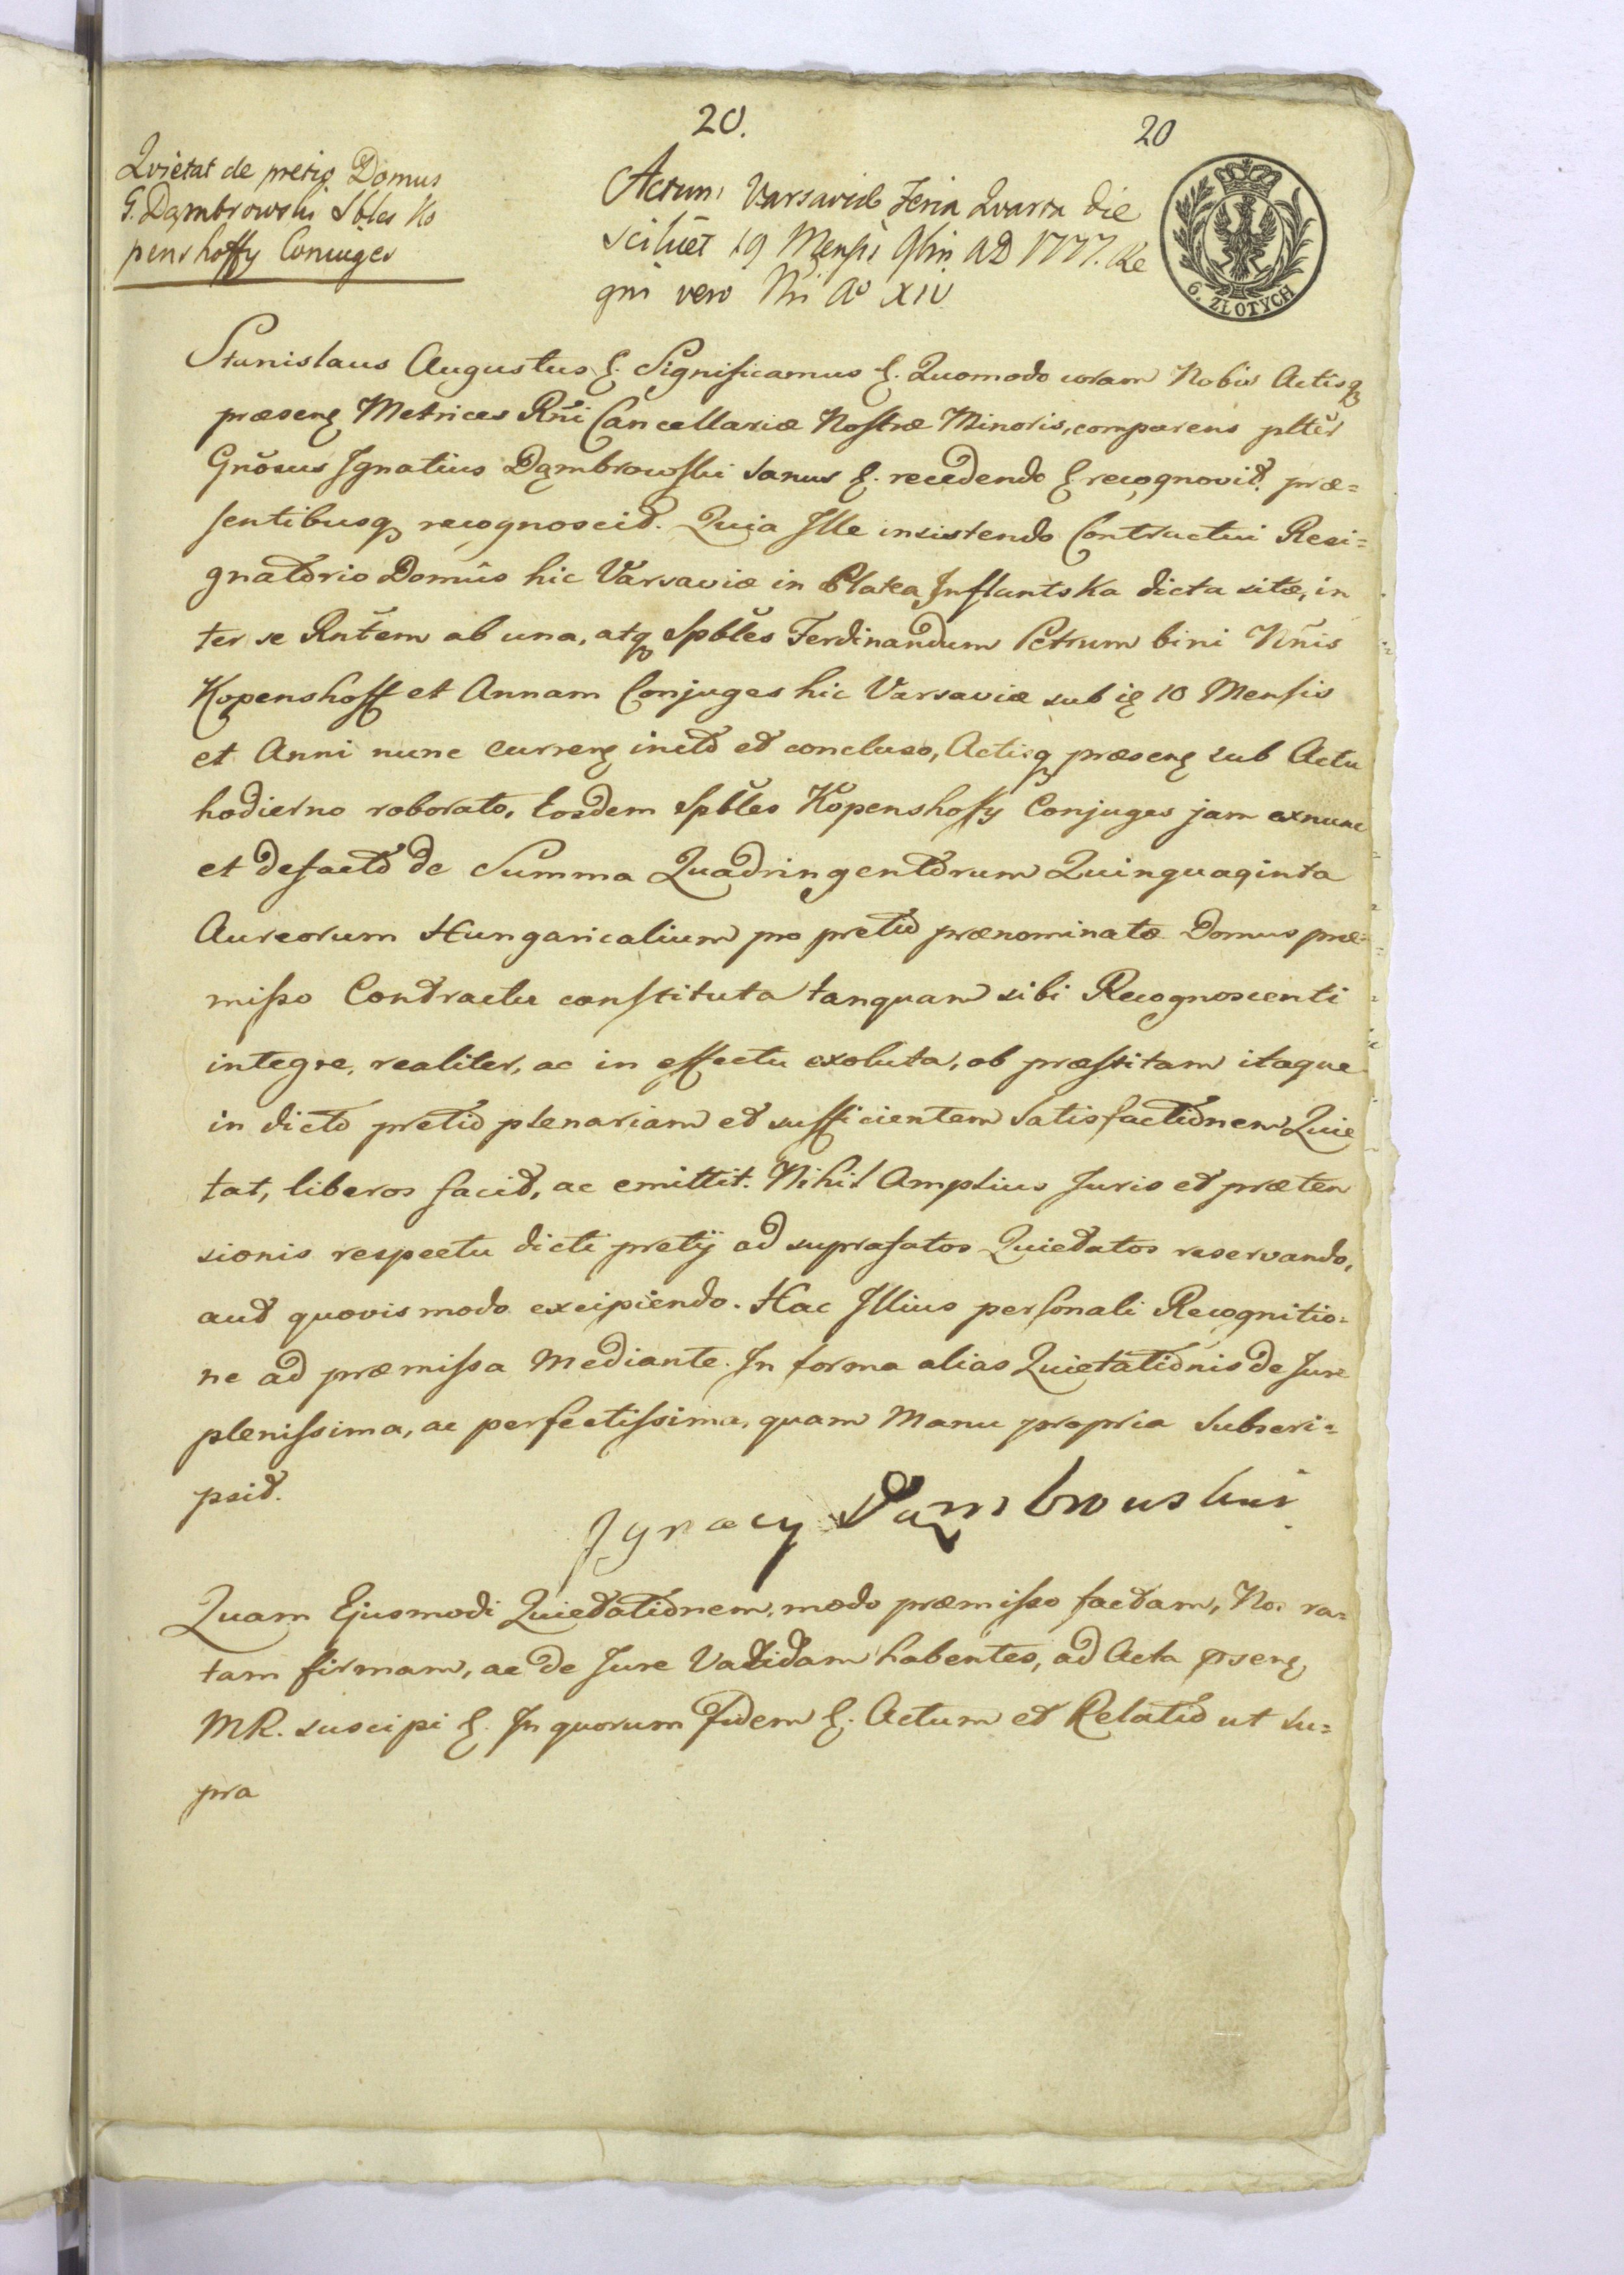 20.
20
Qvietat de pretio Domus
G. Dąmbrowski Sbles Ko
penshoffy Coniuges
Actum Varsaviæ Feria Qvarta die
scilicet 19 Mensis 9bris AD 1777. Re
gni vero Nri Ao XIV
6. ZŁOTYCH
Stanislaus Augustus &. Significamus &. Quomodo coram Nobis Actisq
præsen Metrices Rñi Cancellariæ Nostræ Minoris, comparens pltĕr
Gnŏsus Ignatius Dąmbrowski sanus &. recedendo & recognovit. præ=
sentibusq recognoscit. Quia Ille insistendo Contractui Resi=
gnatorio Domûs hic Varsaviæ in Platea Inflantska dicta sitæ, in
ter se Rntem ab una, atq Spbles Ferdinandum Petrum bini Nñis
Kopenshoff et Annam Conjuges hic Varsaviæ sub 10 Mensis
et Anni nunc curren inito et concluso, Actisq præsen sub Actu
hodierno roborato, Eosdem Spbles Kopenshoffy Conjuges jam exnunc
et defacto de Summa Quadringentorum Quinquaginta
Aureorum Hungaricalium pro pretio prænominatæ Domus præ=
misso Contractu constituta tanquam sibi Recognoscenti
integre, realiter, ac in effectu exoluta, ob præstitam itaque
in dicto pretio plenariam et sufficientem satisfactionem Quie
tat, liberos facit, ac emittit. Nihil Amplius Juris et præten
sionis respectu dicti pretij ad suprafatos Quietatos reservando,
aut quovis modo excipiendo. Hac Illius personali Recognitio=
ne ad præmissa Mediante. In forma alias Quietationis de Jure
plenissima, ac perfectissima, quam Manu propria Subscri=
psit.
Ignacy Dąmbrowski
Quam Ejusmodi Quietationem, modo præmisso factam, Nos ra=
tam firmam, ac de Jure Validam habentes, ad Acta psen
MR. suscipi &. In quorum fidem &. Actum et Relatio ut su=
pra